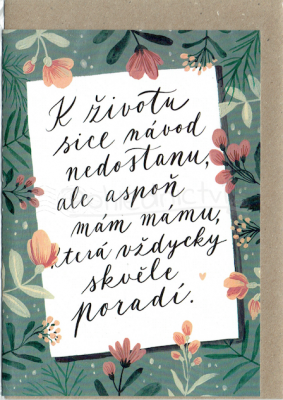 K životu
sice návod
nedostanu,
ale aspoň
mám mámu,
která vždycky
skvěle
poradí.